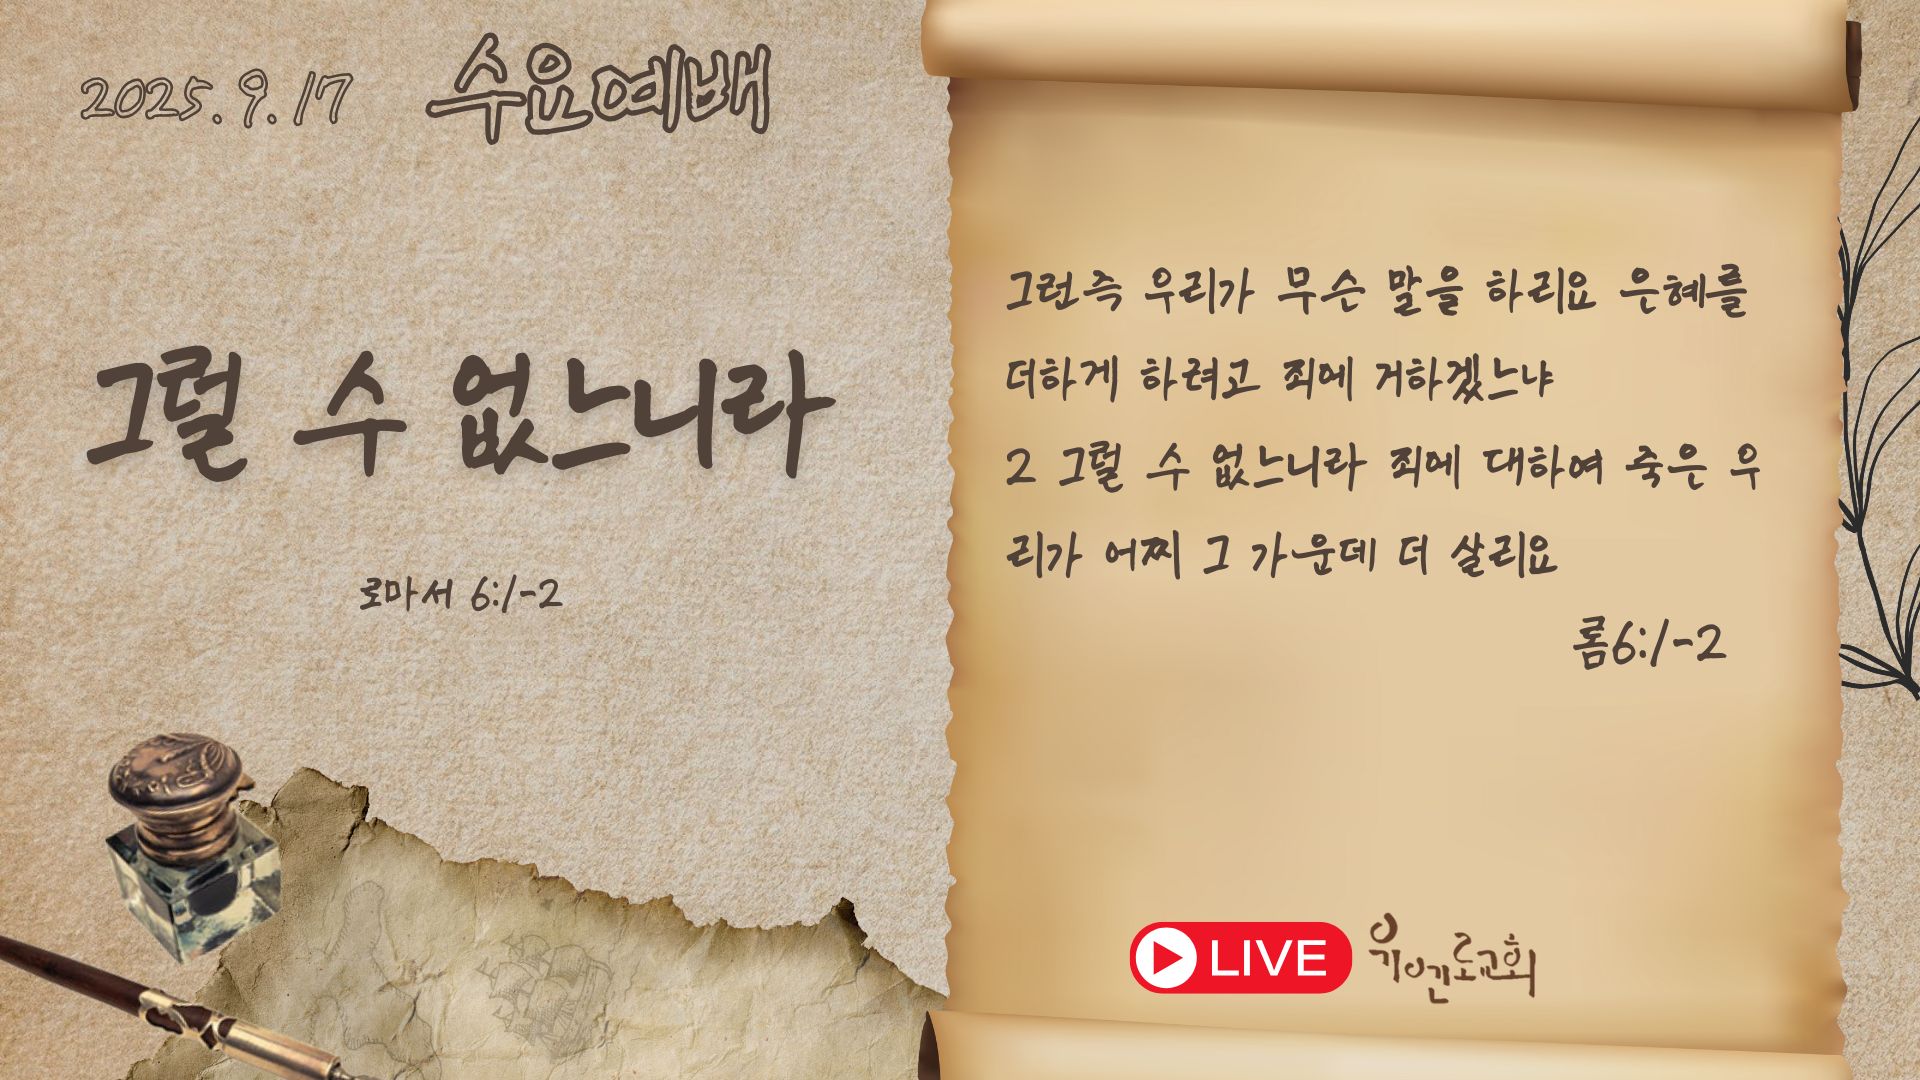 2025.9.17 수요예배
그럴 수 없느니라
로마서 6:1-2
그런즉 우리가 무슨 말을 하리요 은혜를
더하게 하려고 죄에 거하겠느냐
2 그럴 수 없느니라 죄에 대하여 죽은 우
리가 어찌 그 가운데 더 살리요
롬6:1-2
LIVE